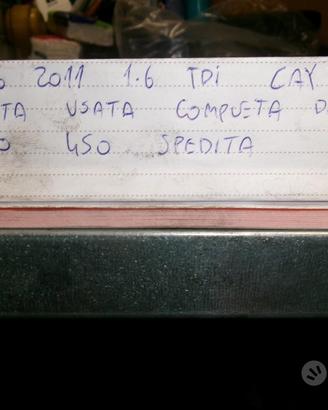 2011 1.6 TDI CAY
TA USATA COMPLETA D
O 450 SPEDITA